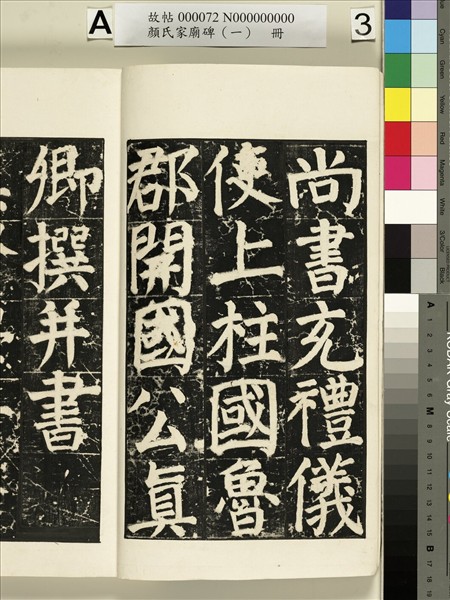 A
故帖 000072 N000000000
顏氏家廟碑（一） 冊
3
尚書充禮儀
使上柱國魯
郡開國公真
卿撰并書
Cyan
Green
Yellow
Red
Magenta
White
3/Color
Black
A
1
2
3
4
5
6
M
8
9
10
11
12
13
14
15
B
17
18
19